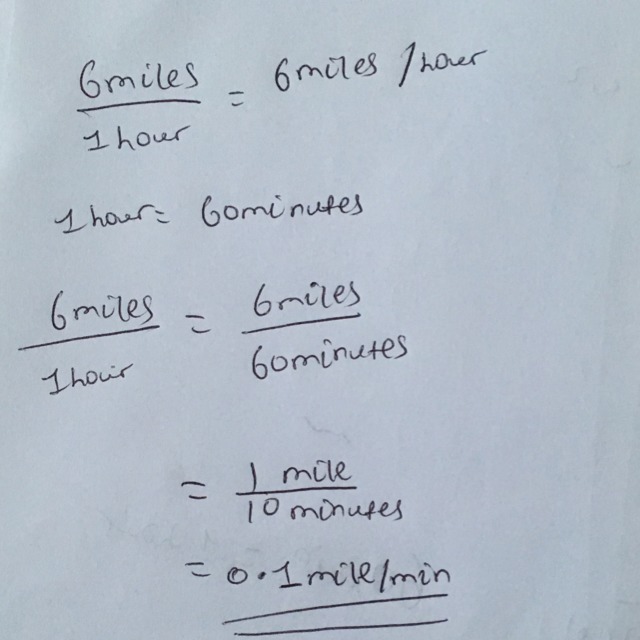 6miles
1 hour
= 6miles / hour
1 hour = 60minutes
6miles
1 hour
= 6miles
60minutes
= 1 mile
10 minutes
= 0.1 mile/min